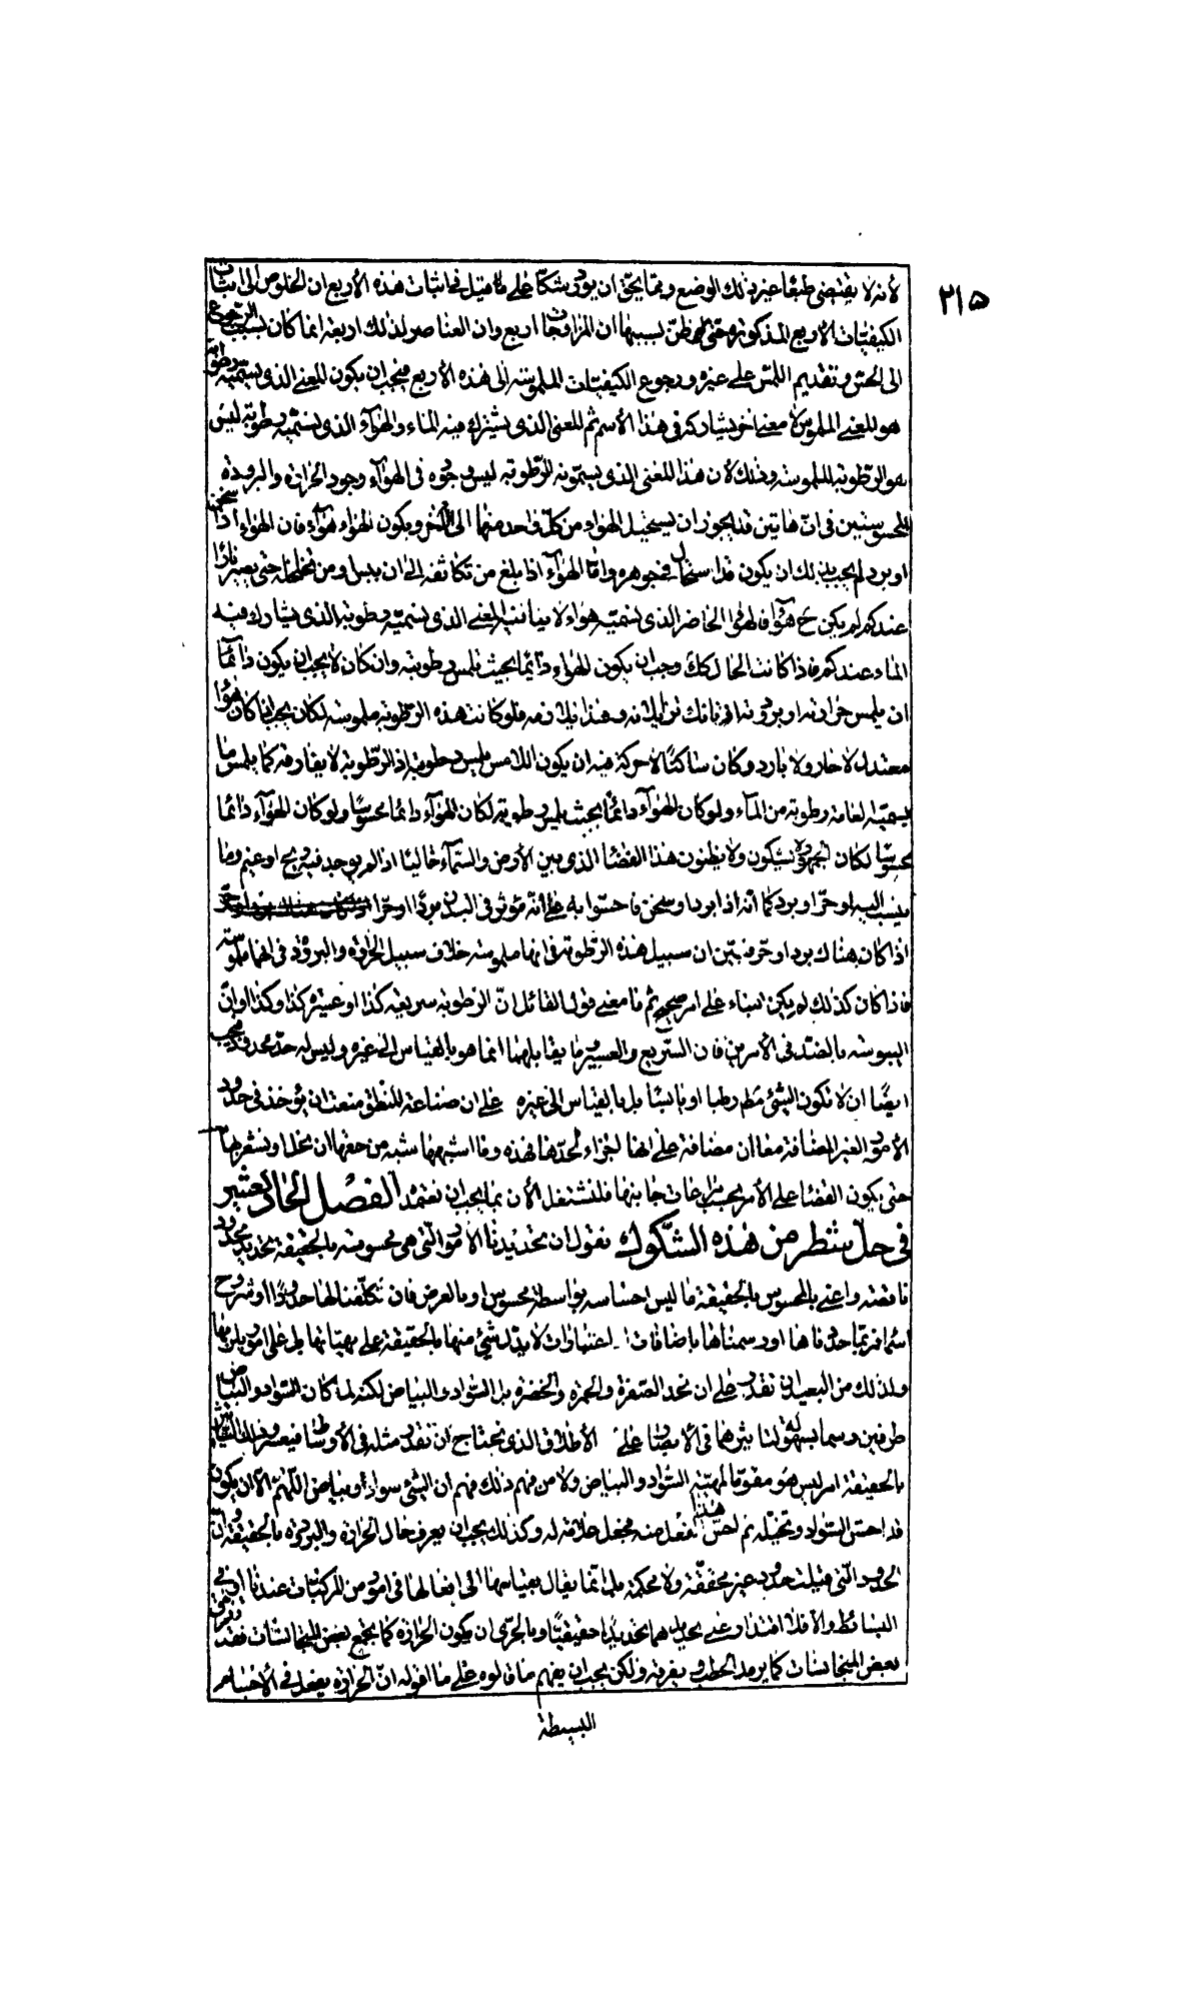 ٢١۵
لأنه لا يقتضى طبعا غير ذلك الوضع ومما يحق ان يورد شكا على ما قيل فى اثبات هذه الأربع ان الخلوص الى اثبات
الكيفيات الاربع المذكورة حتى ظن بسببها ان المزاوجات اربع وان العناصر لذلك اربعة انما كان بسبب الرجوع
الى الحس وتقديم اللمس على غيره ورجوع الكيفيات الملموسة الى هذه الأربع فيجب ان يكون المعنى الذى يسميه رطوبة
هو المعنى الملموس لا معنى اخر يشاركه فى هذا الأسم ثم المعنى الذى يشترك فيه الماء والهواء الذى يسميه رطوبة ليس
هو الرطوبة الملموسة وذلك لأن هذا المعنى الذى يسمونه الرطوبة ليس وجوده فى الهواء وجود الحرارة والبرودة
المحسوستين فى ان هاتين قد يجوز ان يستحيل الهواء من كل واحد منهما الى الأخر ويكون الهواء هواء فان الهواء اذا سخن
او برد لم يجب بذلك ان يكون قد استحال فى جوهره واما الهواء اذا بلغ من تكاثفه الى ان ييبس ومن تخلخله حتى يصير نارا
عندكم لم يكن ح هواء فالهواء الحاضر الذى نسميه هواء لا يباينه المعنى الذى نسميه رطوبة الذى يشارك فيه
الماء عندكم فاذا كانت الحال كك وجب ان يكون الهواء دائما بحيث تلمس رطوبته وان كان لا يجب ان يكون دائما
ان يلمس حرارته او برودته اذ تانك تزايلانه وهذا لا يفارقه فلو كانت هذه الرطوبة ملموسة لكان يجب اذا كان هواء
معتدل لا حار ولا بارد وكان ساكنا لا حركة فيه ان يكون اللامس يلمس رطوبة اذ الرطوبة لا يفارقه كما يلمس ما
يسميه العامة رطوبة من الماء ولو كان الهواء دائما بحيث يلمس رطوبة لكان الهواء دائما محسوسا ولو كان الهواء دائما
محسوسا لكان الجمهور لا يشكون ولا يظنون هذا الفضا الذى بين الأرض والسماء خاليا اذا لم يوجد فيه ريح او غيم وما
ينسب اليه او حر او برد كما انه اذا برد او سخن فاحسوا به على انه مؤثر فى البدن بردا او حرا
اذا كان هناك برد او حر فبين ان سبيل هذه الرطوبة فى انها ملموسة خلاف سبيل الحرارة والبرودة فى انها ملموسة
فاذا كان كذلك لم يكن البناء على امر صحيح ثم ما معنى قول القائل ان الرطوبة سريعة كذا او عسرة كذا وكذا وان
اليبوسة بالضد فى الأمرين فان السريع والعسير وما يقابلهما انما هو بالقياس الى غيره وليس له حد محدود فيجب
ايضا ان لا تكون الشئ مط رطبا او يابسا بل بالقياس الى غيره على ان صناعة المنطق منعت ان يؤخذ فى حدود
الأمور الغير المضافة معان مضافة على انها اجزاء لحدها فهذه وما اشبهها شبه من حقها ان تحل او نشعر بها
حتى يكون القضا على الأمر بحسب مراعات جانبها فلنشتغل الأن بما يجب ان نعتمد الفصل الحادى عشر
فى حل شطر من هذه الشكوك نقول ان تحديدنا الأمور التى هى محسوسة بالحقيقة تحديد محدود
ناقصة واعنى بالمحسوس بالحقيقة ما ليس احساسه بواسطة محسوس او بالعرض فان تكلفنا لها حدودا او شروح
اسماء فربما حددناها او رسمناها باضافات او اعتبارات لا يدل شئ منها بالحقيقة على مهياتها بل على امور يلزمها
ولذلك من البعيد ان نقدر على ان نحد الصفرة والحمرة والخضرة بل السواد والبياض لكنه لما كان السواد والبياض
طرفين رسما بسهولة لتاثيرهما فى الأبصار على الأطلاق الذى نحتاج ان نقدر مثله فى الأوساط فيعسر وذلك التأثير
بالحقيقة امر ليس هو مقوما لمهية السواد والبياض ولا من فهم ذلك فهم ان الشئ سواد او بياض اللهم الا ان يكون
قد احس السواد وتخيله ثم احس هذا الفعل منه فجعل علامة له وكذلك يجب ان يعرف حال الحرارة والبرودة بالحقيقة وان
الحدود التى قيلت حدود غير محققة ولا محكمة بل انما يقال بقياسها الى افعالها فى امور من المركبات عندنا او فى
البسائط والأفلاك فمن ذا وعنى بحديهما تحديدا حقيقيا وبالحرى ان يكون الحرارة كما يجمع بعض المتجانسات فقد تفرق
بعض المتجانسات كما يرمد الحطب ويفرقه ولكن يجب ان يفهم ما قالوه على ما اقوله ان الحرارة يفعل فى الأجسام
البسيطة